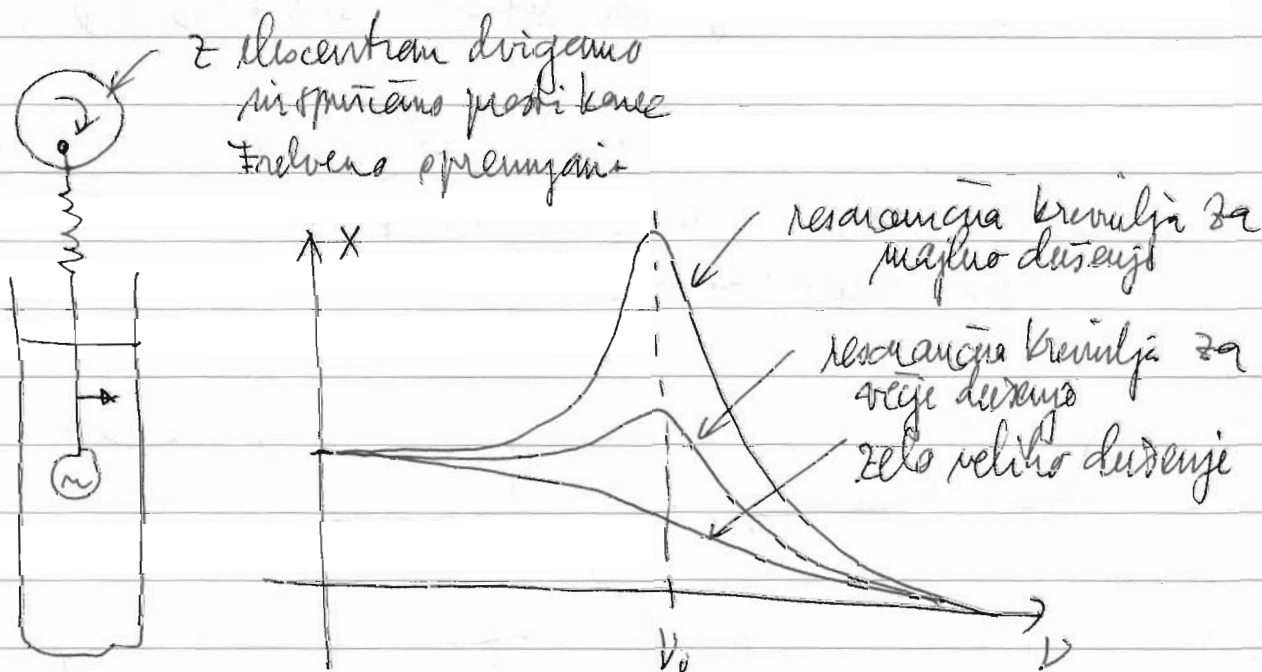 z ekscentrom dvigamo
in spuščamo prosti konec
Frekvenco spreminjamo
X
resonančna krivulja za
majhno dušenje
resonančna krivulja za
večje dušenje
zelo veliko dušenje
m
ν₀
ν